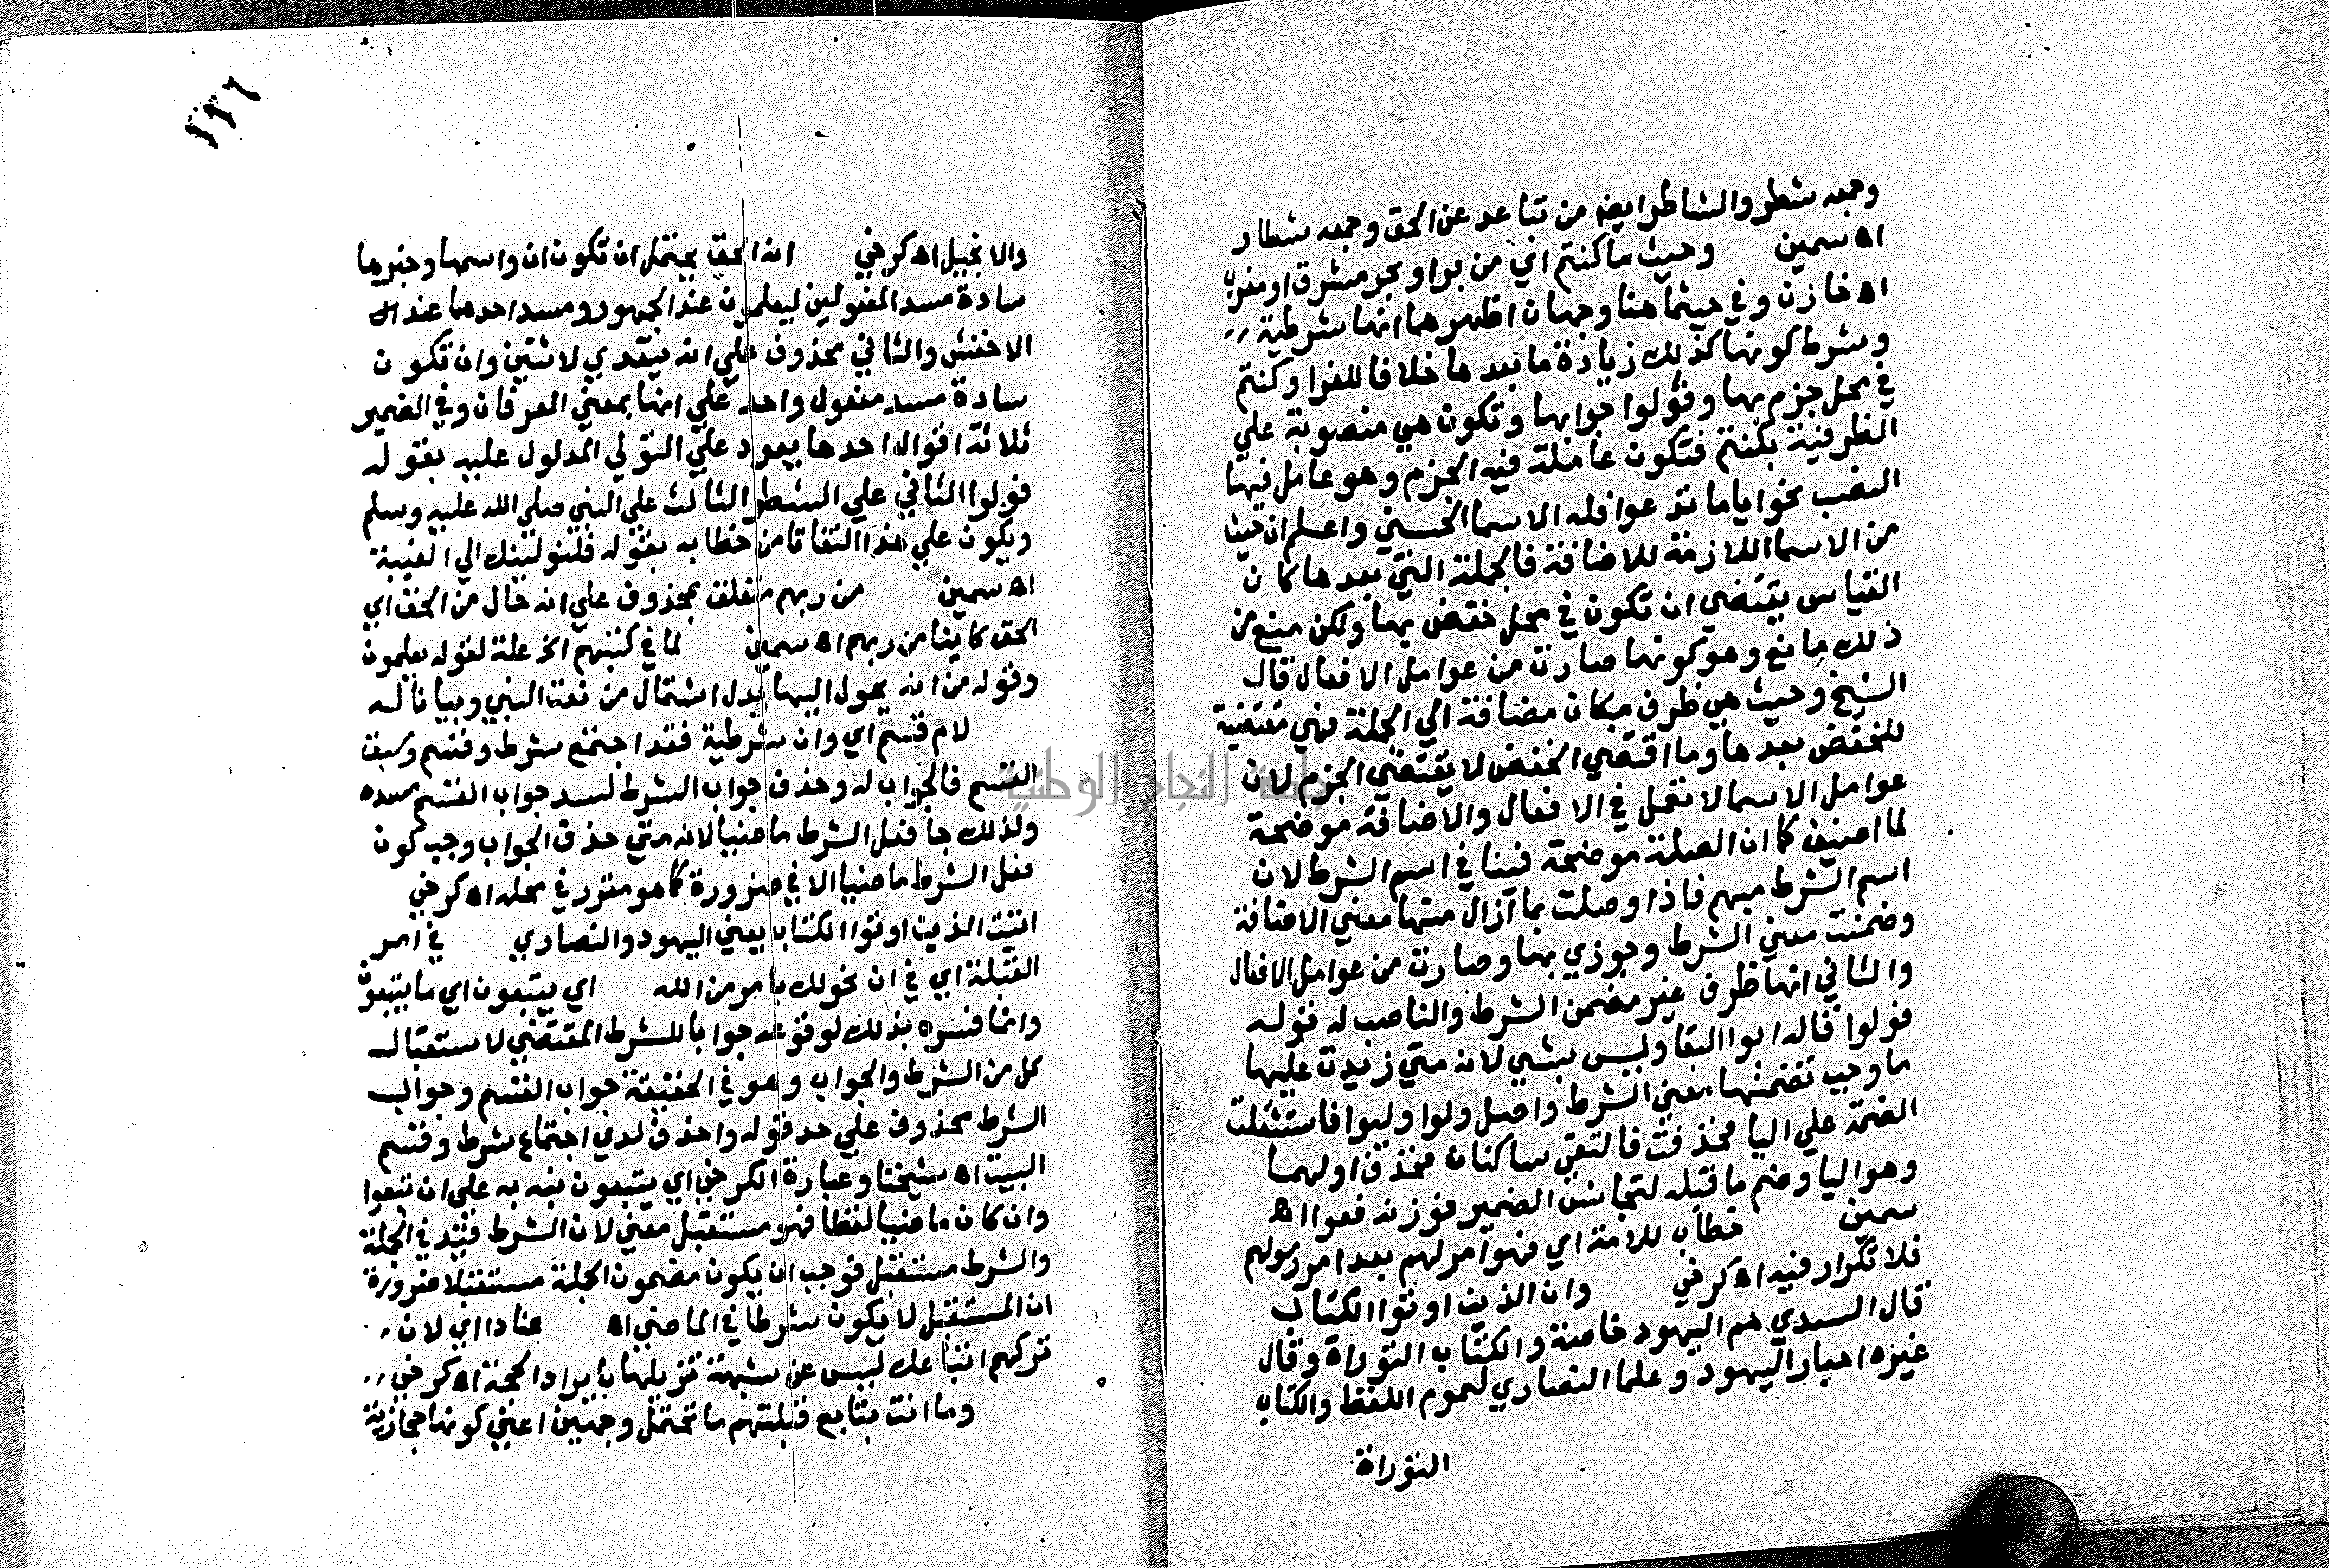 وجمعه شطر والشاطر ايضا من تباعد عن الحق وجمعه شطار
اه سمين وحيث ما كنتم اي من بر او بحر مشرق او مغرب
اه خازن وفي حيثما هنا وجهان اظهرهما انها شرطية
وشرط كونها كذلك زيادة ما بعدها خلافا للفرا وكنتم
في محل جزم بها وفولوا جوابها وتكون هي منصوبة علي
الظرفية بكنتم فتكون عاملة فيه الجزم وهو عامل فيها
النصب نحو اياما تدعوا فله الاسما الحسني واعلم ان حيث
من الاسما اللازمة للاضافة فالجملة التي بعدها كان
القياس يقتضي ان تكون في محل خفض بها ولكن منع من
ذلك مانع وهو كونها صارت من عوامل الافعال قال
الشيخ وحيث هي ظرف مكان مضافة الي الجملة فهي مقتضية
للخفض بعدها وما اقتضي الخفض لا يقتضي الجزم لان
عوامل الاسما لا تعمل في الافعال والاضافة موضحة
لما اضيف كما ان الصلة موضحة فينا في اسم الشرط لان
اسم الشرط مبهم فاذا وصلت بما زال منها معني الاضافة
وضمنت معني الشرط وجوزي بها وصارت من عوامل الافعال
والثاني انها ظرف غير مضمن الشرط والناصب له قوله
فولوا قاله ابوا البقا وليس بشي لانه متي زيدت عليها
ما وجب تضمنها معني الشرط واصل ولوا وليوا فاستثقلت
الضمة علي اليا فحذفت فالتقي ساكنان فحذف اولهما
وهو اليا وضم ما قبله لتجانس الضمير فوزنه فعوا اه
سمين خطاب للامة اي فهو امر لهم بعد امر رسولهم
فلا تكرار فيه اه كرخي وان الذين اوتوا الكتاب
قال السدي هم اليهود خاصة والكتاب التوراة وقال
غيره احبار اليهود وعلما النصاري لعموم اللفظ والكتاب
التوراة
٢٢٦
والانجيل اه كرخي انه الحق يحتمل ان تكون ان واسمها وخبرها
سادة مسد المفعولين ليعلمون عند الجمهور ومسد احدهما عند
الاخفش والثاني محذوف علي انه يتعدي لاثنين وان تكون
سادة مسد مفعول واحد علي انها بمعني العرفان وفي الضمير
ثلاثة اقوال احدها يعود علي التولي المدلول عليه بقوله
فولوا الثاني علي الشطر الثالث علي النبي صلي الله عليه وسلم
ويكون علي هذا التفاتا من خطابه بقوله فلنولينك الي الغيبة
اه سمين من ربهم متعلق بمحذوف علي انه حال من الحق اي
الحق كاينا من ربهم اه سمين لما في كتبهم الخ علة لقوله يعلمون
وقوله من انه يحول اليها بدل اشتمال من نعت النبي وبيانا له
لام قسم اي وان شرطية فقد اجتمع شرط وقسم وسبق
القسم فالجواب له وحذف جواب الشرط لسد جواب القسم مسده
ولذلك جا فعل الشرط ماضيا لانه متي حذف الجواب وجب كون
فعل الشرط ماضيا الا في ضرورة كما هو مقرر في محله اه كرخي
اتيت الذين اوتوا الكتاب يعني اليهود والنصاري في امر
القبلة اي في ان تحولك بامر من الله اي يتبعون اي ما يتبعون
وانما فسره بذلك لوقوعه جوابا للشرط المقتضي لاستقبال
كل من الشرط والجواب وهو في الحقيقة جواب القسم وجواب
الشرط محذوف علي حد قوله واحذف لدي اجتماع شرط وقسم
البيت اه شيخنا وعبارة الكرخي اي يتبعون نبه به علي ان تبعوا
وان كان ماضيا لفظا فهو مستقبل معني لان الشرط قيد في الجملة
والشرط مستقبل فوجب ان يكون مضمون الجملة مستقبلا ضرورة
ان المستقبل لا يكون شرطا في الماضي اه عنادا اي لان
تركهم اتباعك ليس عن شبهة تزيلها بايراد الحجة اه كرخي
وما انت بتابع قبلتهم ما تحتمل وجهين اعني كونها حجازية
جامعة النجاح الوطنية